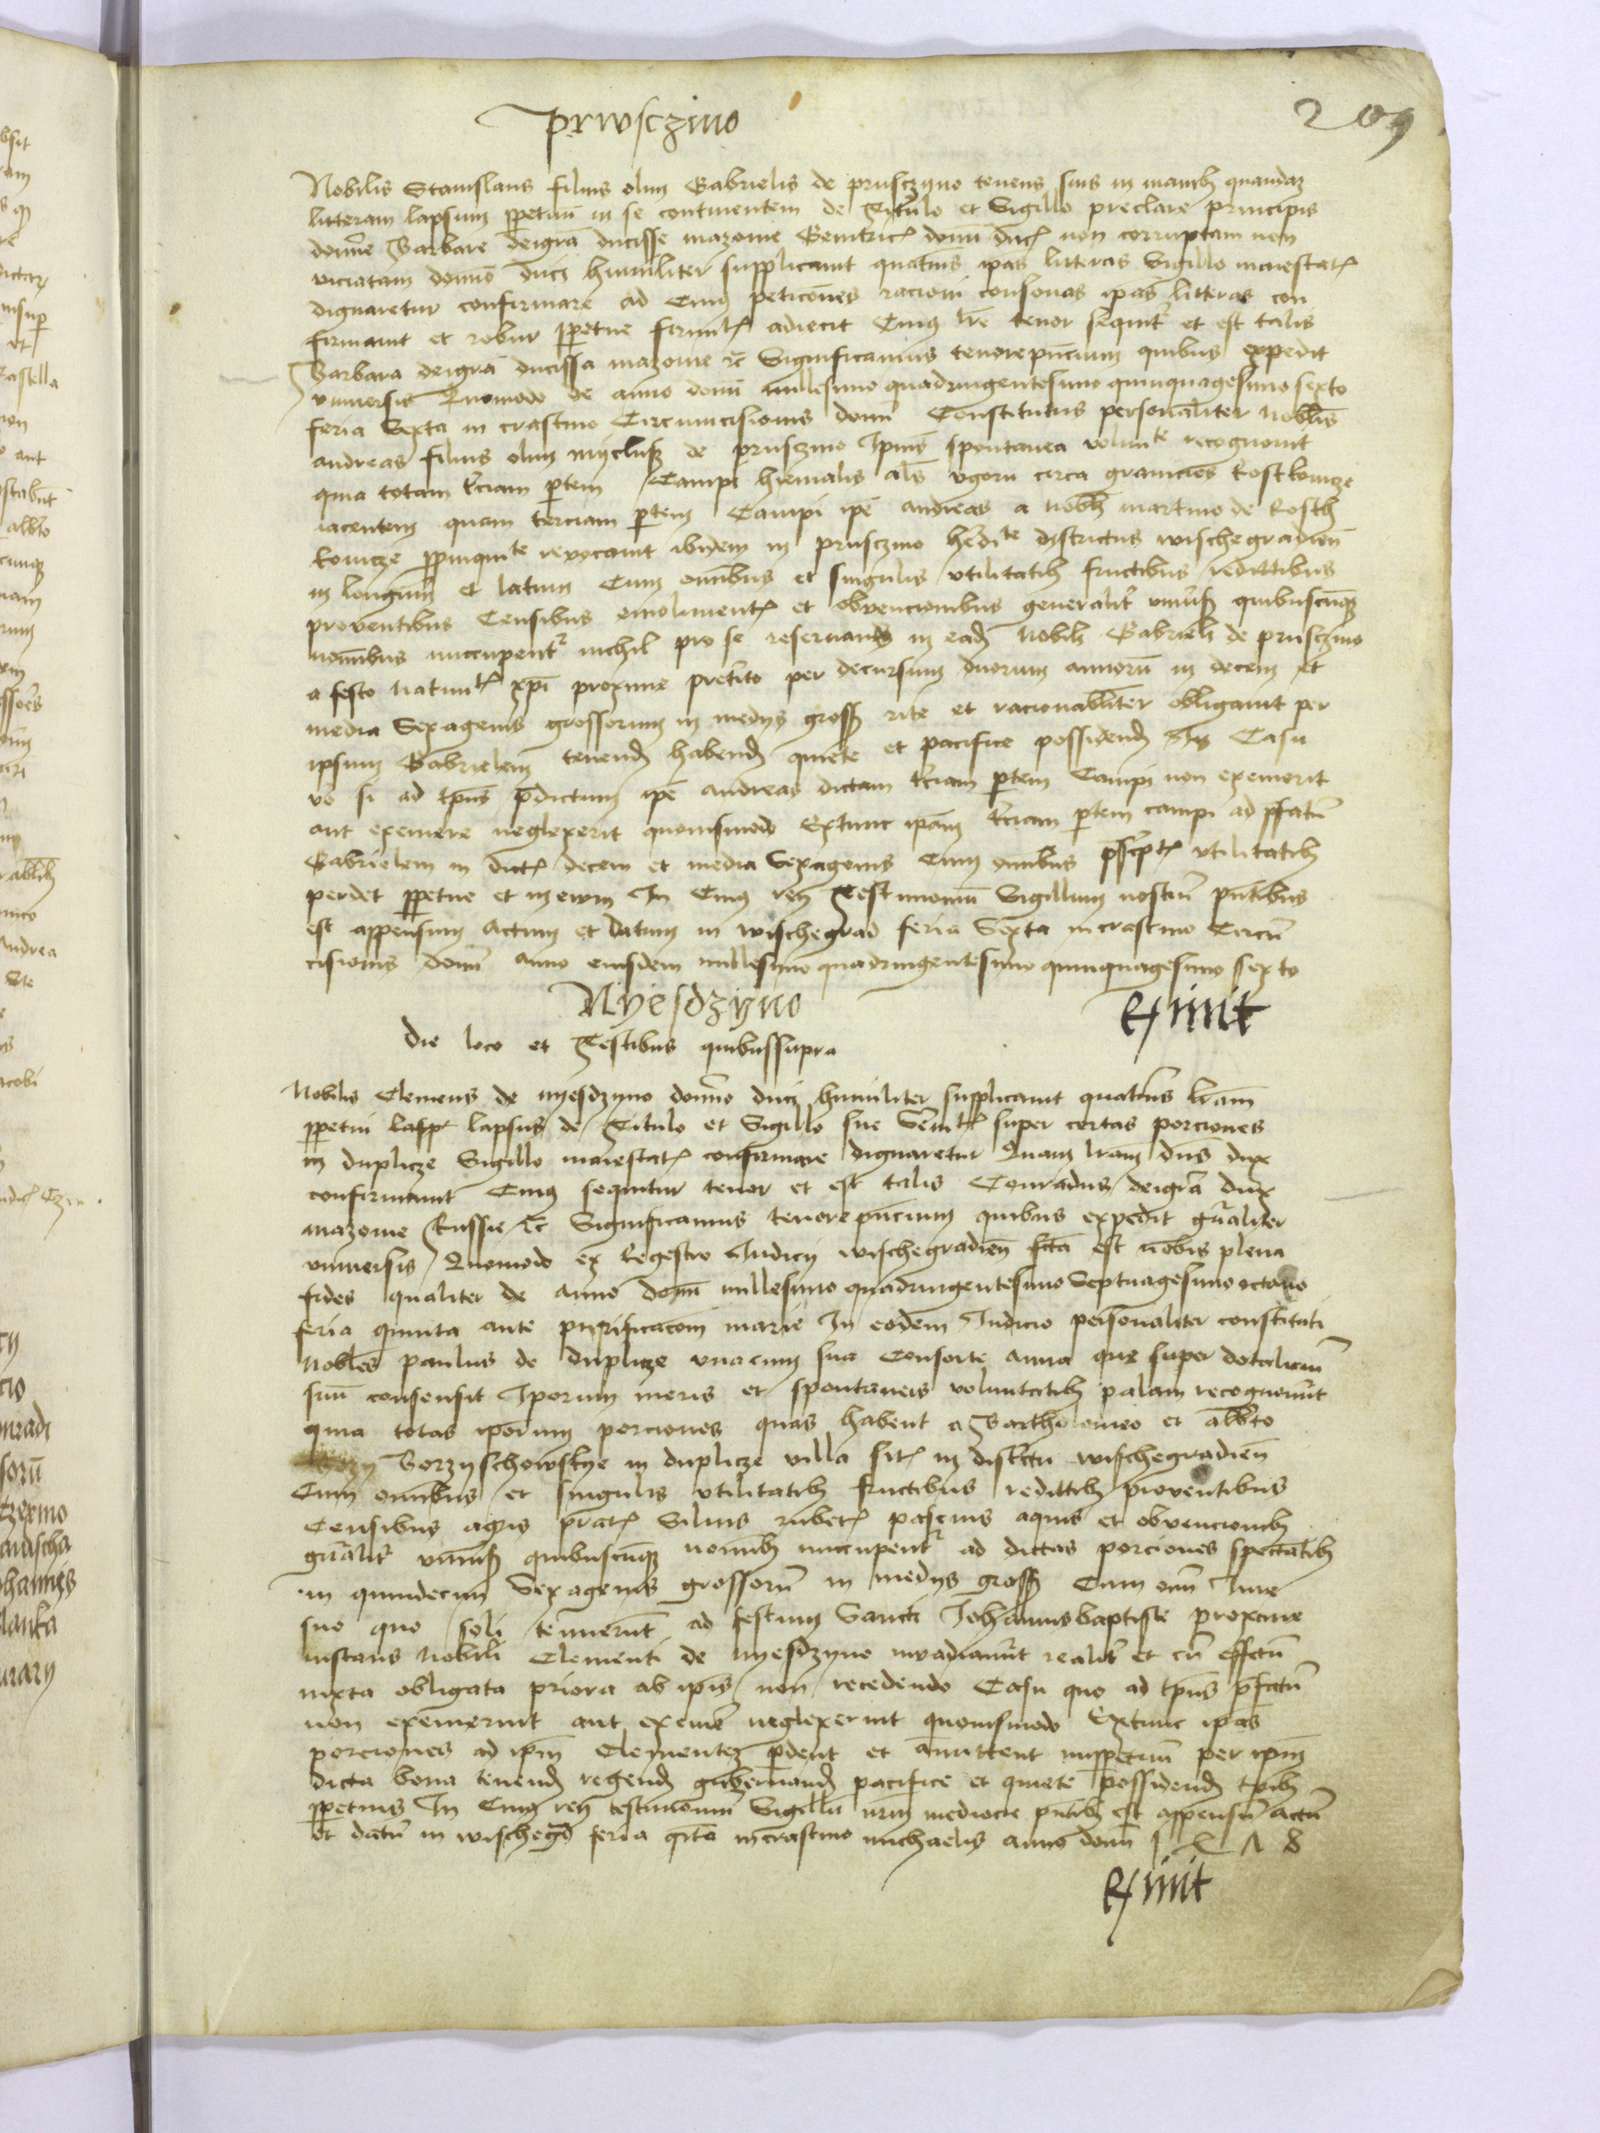 209
prwsczino
Nobilis Stanislaus filius olim Gabrielis de prusczyno tenens suis in manib quandaz
litteram lapsum ppetuu in se continentem de Titulo et Sigillo preclare principis
domine Barbare deigra ducisse mazouie Genitric domi duc non corruptam non
viciatam domino duci humiliter supplicauit quatinus ipas litteras Sigillo maiestat
dignaretur confirmare ad Cuius peticones racioni consonas ipas litteras con
firmauit et robur ppetue firmit adiecit Cuius lre tenor sequit et est talis
Barbara deigra ducissa mazouie etc Significamus tenore pncium quibus expedit
vniuersis Quomodo de anno domi millesimo quadringentesimo quinquagesimo sexto
feria Sexta in crastino Circumcisionis domi Constitutus personaliter nobilis
andreas filius olim de prusczino Ipius spontanea volunte recognouit
quia totam tciam ptem Campi hiemalis als vgoru circa granicies Rostkouicze
iacentem quam terciam ptem Campi ipe andreas a nobili martino de Rosth
kouicze ppinquite reuocauit ibidem in prusczino hedite districtus wischegradien
in longum et latum Cum omnibus et singulis vtilitatib fructibus redittibus
prouentibus Censibus emoliment et obuencionibus generalit vniuss quibuscunq
nominibus nuccupent nichil pro se reseruand in eade nobili Gabrieli de prusczino
a festo natiuit xpi proxime pretito per decursum duorum annoru in decem et
media Sexagenis grossorum in medys gross rite et racionabiliter obligauit per
ipsum Gabrielem tenend habend quiete et pacifice possidend In Casu
vo si ad tpus pdictum ipe andreas dictam tciam ptem Campi non exemerit
aut exemere neglexerit quouismodo Extunc ipam tciam ptem campi ad pfatu
Gabrielem in dict decem et media Sexagenis Cum omnibus psspt vtilitatib
perdet ppetue et in ewm In Cuius rei Testimoniu Sigillum nostru pntibus
est appensum Actum et Datum in wischegrad feria Sexta in crastino Circu
cisionis domi anno eiusdem millesimo quadringentesimo quinquagesimo sexto
Nyesdzyno
Die loco et Testibus quibussupra
Nobilis Clemens de nyesdzyno domino duci humiliter supplicauit quatinus lram
ppetui lapsus de Titulo et Sigillo sue Serenit super certas porciones
in duplicze Sigillo maiestat confirmare dignaretur Quam lram dns dux
confirmauit Cuius sequitur tenor et est talis Conradus deigra dux
mazouie Russie etc Significamus tenore pncium quibus expedit gnaliter
vniuersis Quomodo ex Regestro Iudicij wischegradien fcta est nobis plena
fides qualiter de anno domi millesimo quadringentesimo Septuagesimo octauo
feria quinta ante purificacom marie In eodem Iudicio personaliter constituti
Nobiles paulus de duplicze vnacum sua Consorte anna que super dotaliciu
suu consensit Iporum meris et spontaneis voluntatib palam recognouerut
quia totas iporum porciones quas habent a Bartholomeo et alberto
Borzyschowskye in duplicze villa sit in districtu wischegradien
Cum omnibus et singulis vtilitatib fructibus redittib prouentibus
Censibus agris prat Siluis rubet pascuis aquis et obuencionib
gnalit vniuss quibuscunq nominib nuccupent ad dictas porciones spectatib
in quindecim Sexagenis grossoru in medys gross Cum omi Iure
suo quo soli tenuerut ad festum Sancti Johannisbaptiste proxime
instans Nobili Clementi de nyesdzyno inuadiauerut realit et cu effctu
iuxta obligata priora ab ipis non recedendo Casu quo ad tpus pfatu
non exemerint aut exeme neglexerint quouismodo Extunc ipas
porciones ad ipm Clementez pdent et amittent inppetuu per ipm
dicta bona tenend regend gubernand pacifice et quiete possidend tpib
ppetuis In Cuius rei testimoniu Sigillu nrm mediocre pntib est appensu actu
et datu in wischegd feria qrta incrastino michaelis anno domi